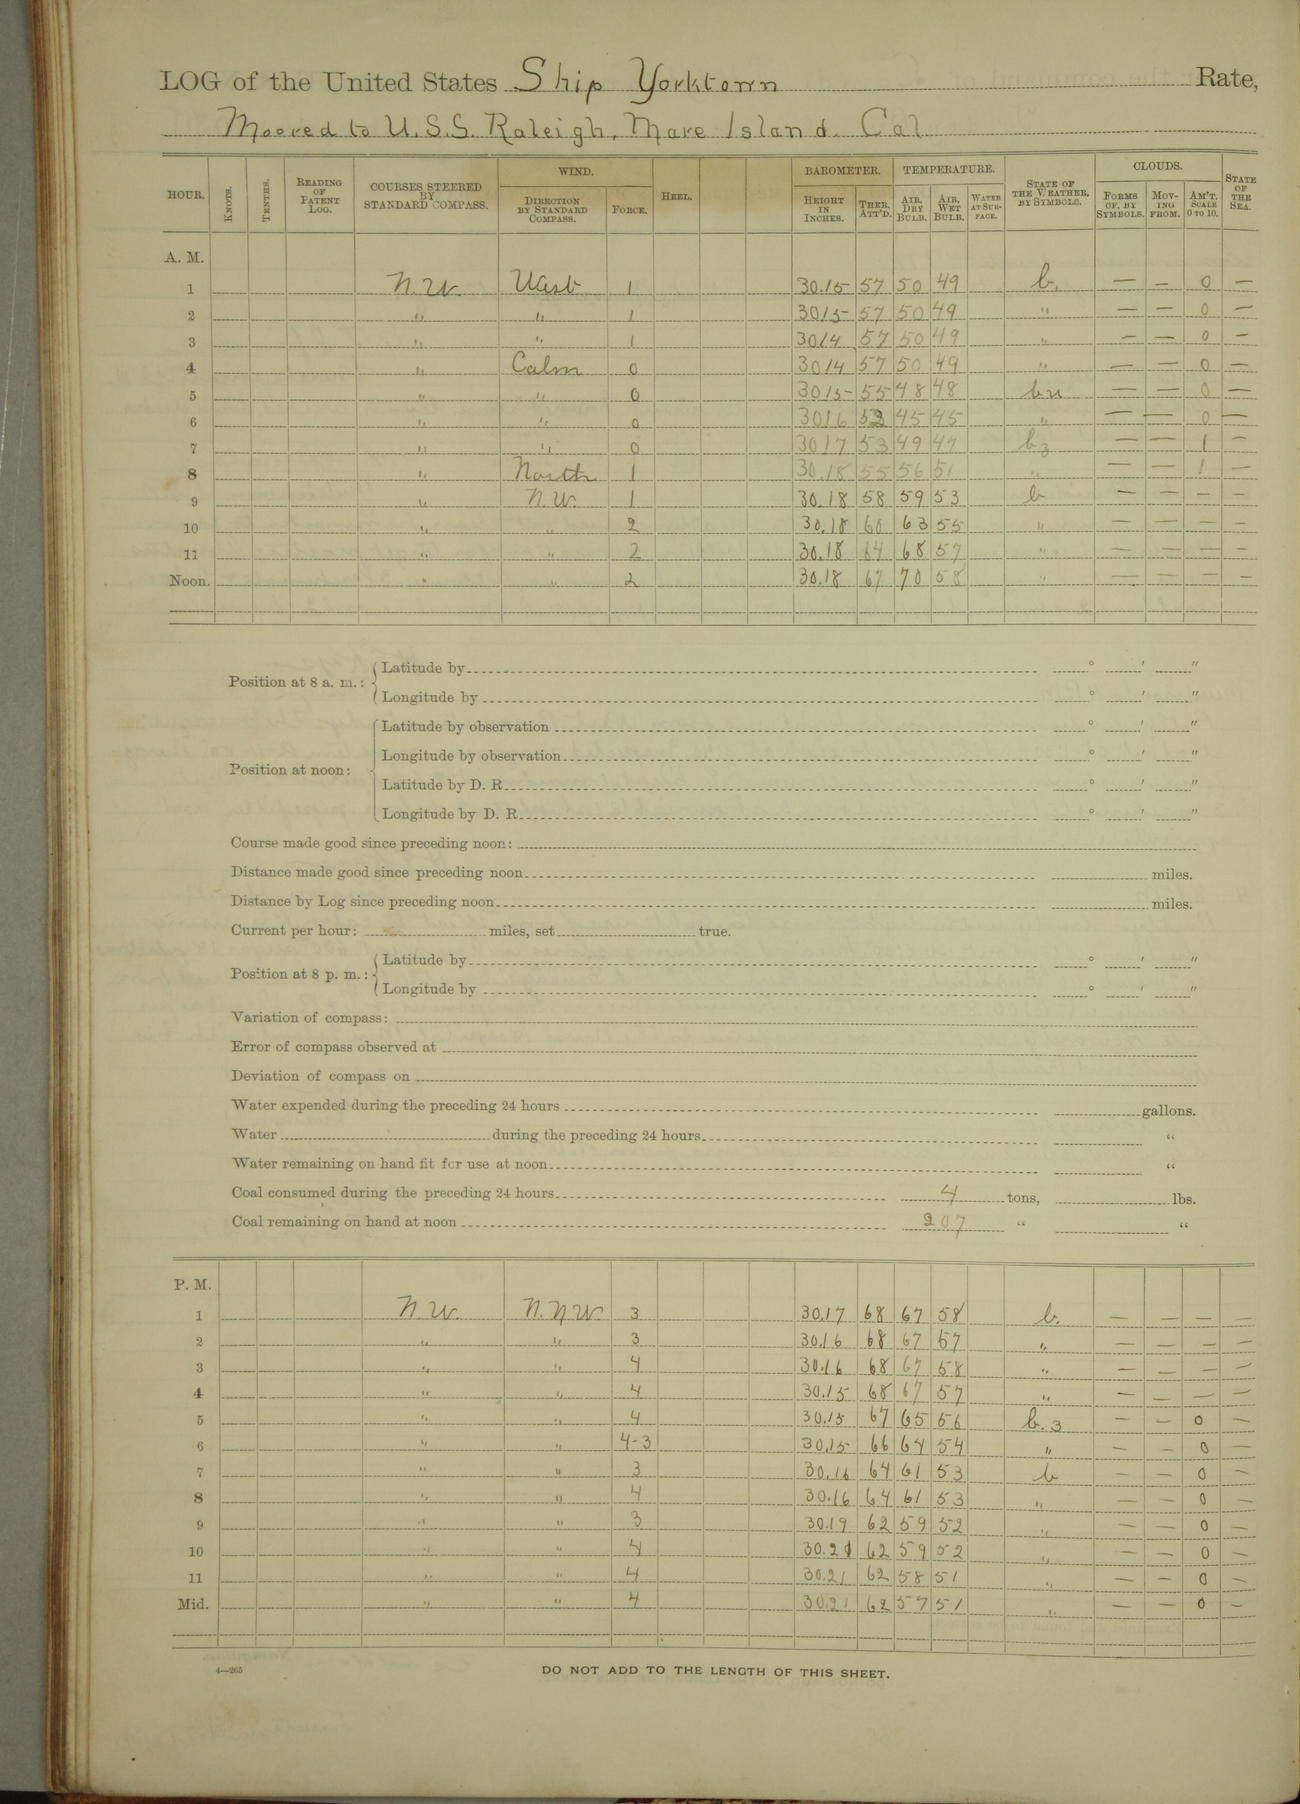 LOG of the United States Ship Yorktown Rate,
Moored to U.S.S. Raleigh, Mare Island. Cal
HOUR. KNOTS. TENTHS. READING OF PATENT LOG. COURSES STEERED BY STANDARD COMPASS. WIND. DIRECTION BY STANDARD COMPASS. FORCE. HEEL. BAROMETER. HEIGHT IN INCHES. THER. ATT'D. TEMPERATURE. AIR, DRY BULB. AIR, WET BULB. WATER AT SURFACE. STATE OF THE WEATHER, BY SYMBOLS. CLOUDS. FORMS OF, BY SYMBOLS. MOVING FROM. AM'T, SCALE 0 TO 10. STATE OF THE SEA.
A. M.
1 N.W. West 1 30.15 57 50 49 b. — — 0 —
2 " " 1 3015 57 50 49 " — — 0 —
3 " " 1 3014 57 50 49 " — — 0 —
4 " Calm 0 3014 57 50 49 " — — 0 —
5 " " 0 3015 55 48 48 bu — — 0 —
6 " " 0 3016 53 45 45 " — — 0 —
7 " " 0 3017 53 49 47 bz — — 1 —
8 " North 1 30.18 55 56 51 " — — 1 —
9 " N.W. 1 30.18 58 59 53 b — — — —
10 " " 2 30.18 60 63 55 " — — — —
11 " " 2 30.18 64 68 57 " — — — —
Noon. " " 2 30.18 67 70 58 " — — — —
Position at 8 a. m.: Latitude by ° ′ ″
Longitude by ° ′ ″
Position at noon: Latitude by observation ° ′ ″
Longitude by observation ° ′ ″
Latitude by D. R. ° ′ ″
Longitude by D. R. ° ′ ″
Course made good since preceding noon:
Distance made good since preceding noon miles.
Distance by Log since preceding noon miles.
Current per hour: miles, set true.
Position at 8 p. m.: Latitude by ° ′ ″
Longitude by ° ′ ″
Variation of compass:
Error of compass observed at
Deviation of compass on
Water expended during the preceding 24 hours gallons.
Water during the preceding 24 hours "
Water remaining on hand fit for use at noon "
Coal consumed during the preceding 24 hours 4 tons, lbs.
Coal remaining on hand at noon 207 " "
P. M.
1 N.W. N.N.W. 3 30.17 68 67 58 b. — — — —
2 " " 3 30.16 68 67 57 " — — — —
3 " " 4 30.16 68 67 58 " — — — —
4 " " 4 30.15 68 67 57 " — — — —
5 " " 4 30.15 67 65 56 b.z — — 0 —
6 " " 4-3 30.15 66 64 54 " — — 0 —
7 " " 3 30.16 64 61 53 b — — 0 —
8 " " 4 30.16 64 61 53 " — — 0 —
9 " " 3 30.19 62 59 52 " — — 0 —
10 " " 4 30.21 62 59 52 " — — 0 —
11 " " 4 30.21 62 58 51 " — — 0 —
Mid. " " 4 30.21 62 57 51 " — — 0 —
4—265
DO NOT ADD TO THE LENGTH OF THIS SHEET.